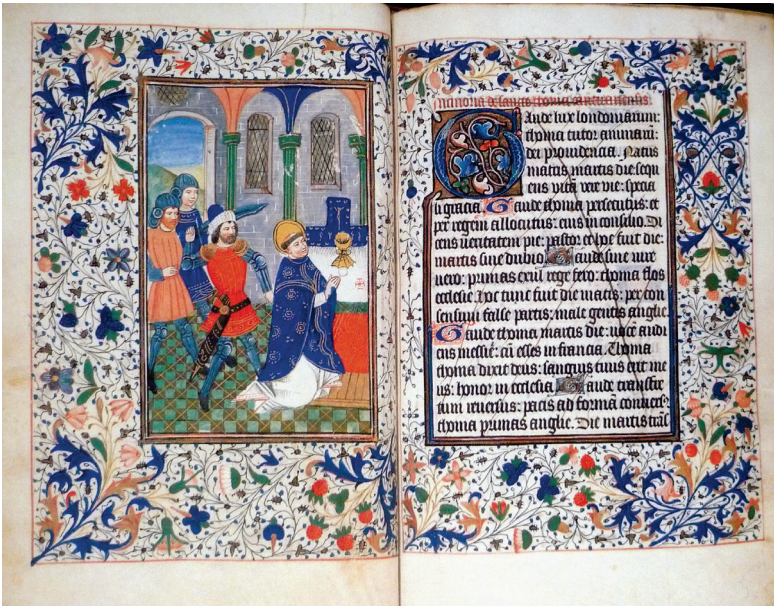 Gaude lux londoniarum:
thoma tutor animarū:
dei prouidencia. Natus
martis die sequ
ens vita die: specia
li gracia. Gaude thoma persecutus: et
per regem allocutus: eius in consilio. Di
cens ueritatem pie: pastor fuit die:
martis sine dubio. Gaude sine
uero: primas exul rege fero: thoma flos
ecclesie. hoc tunc fuit die martis: per con
sensum false partis: male gentis anglie.
Gaude thoma martis die: uocē audi
ens messie: cū esses in francia. Thoma
thoma dixit deus: sanguis tuus erit me
us: honor in ecclesia. Gaude transfre
tum reuersus: pacis ad formā
thoma primas anglie. Die martis